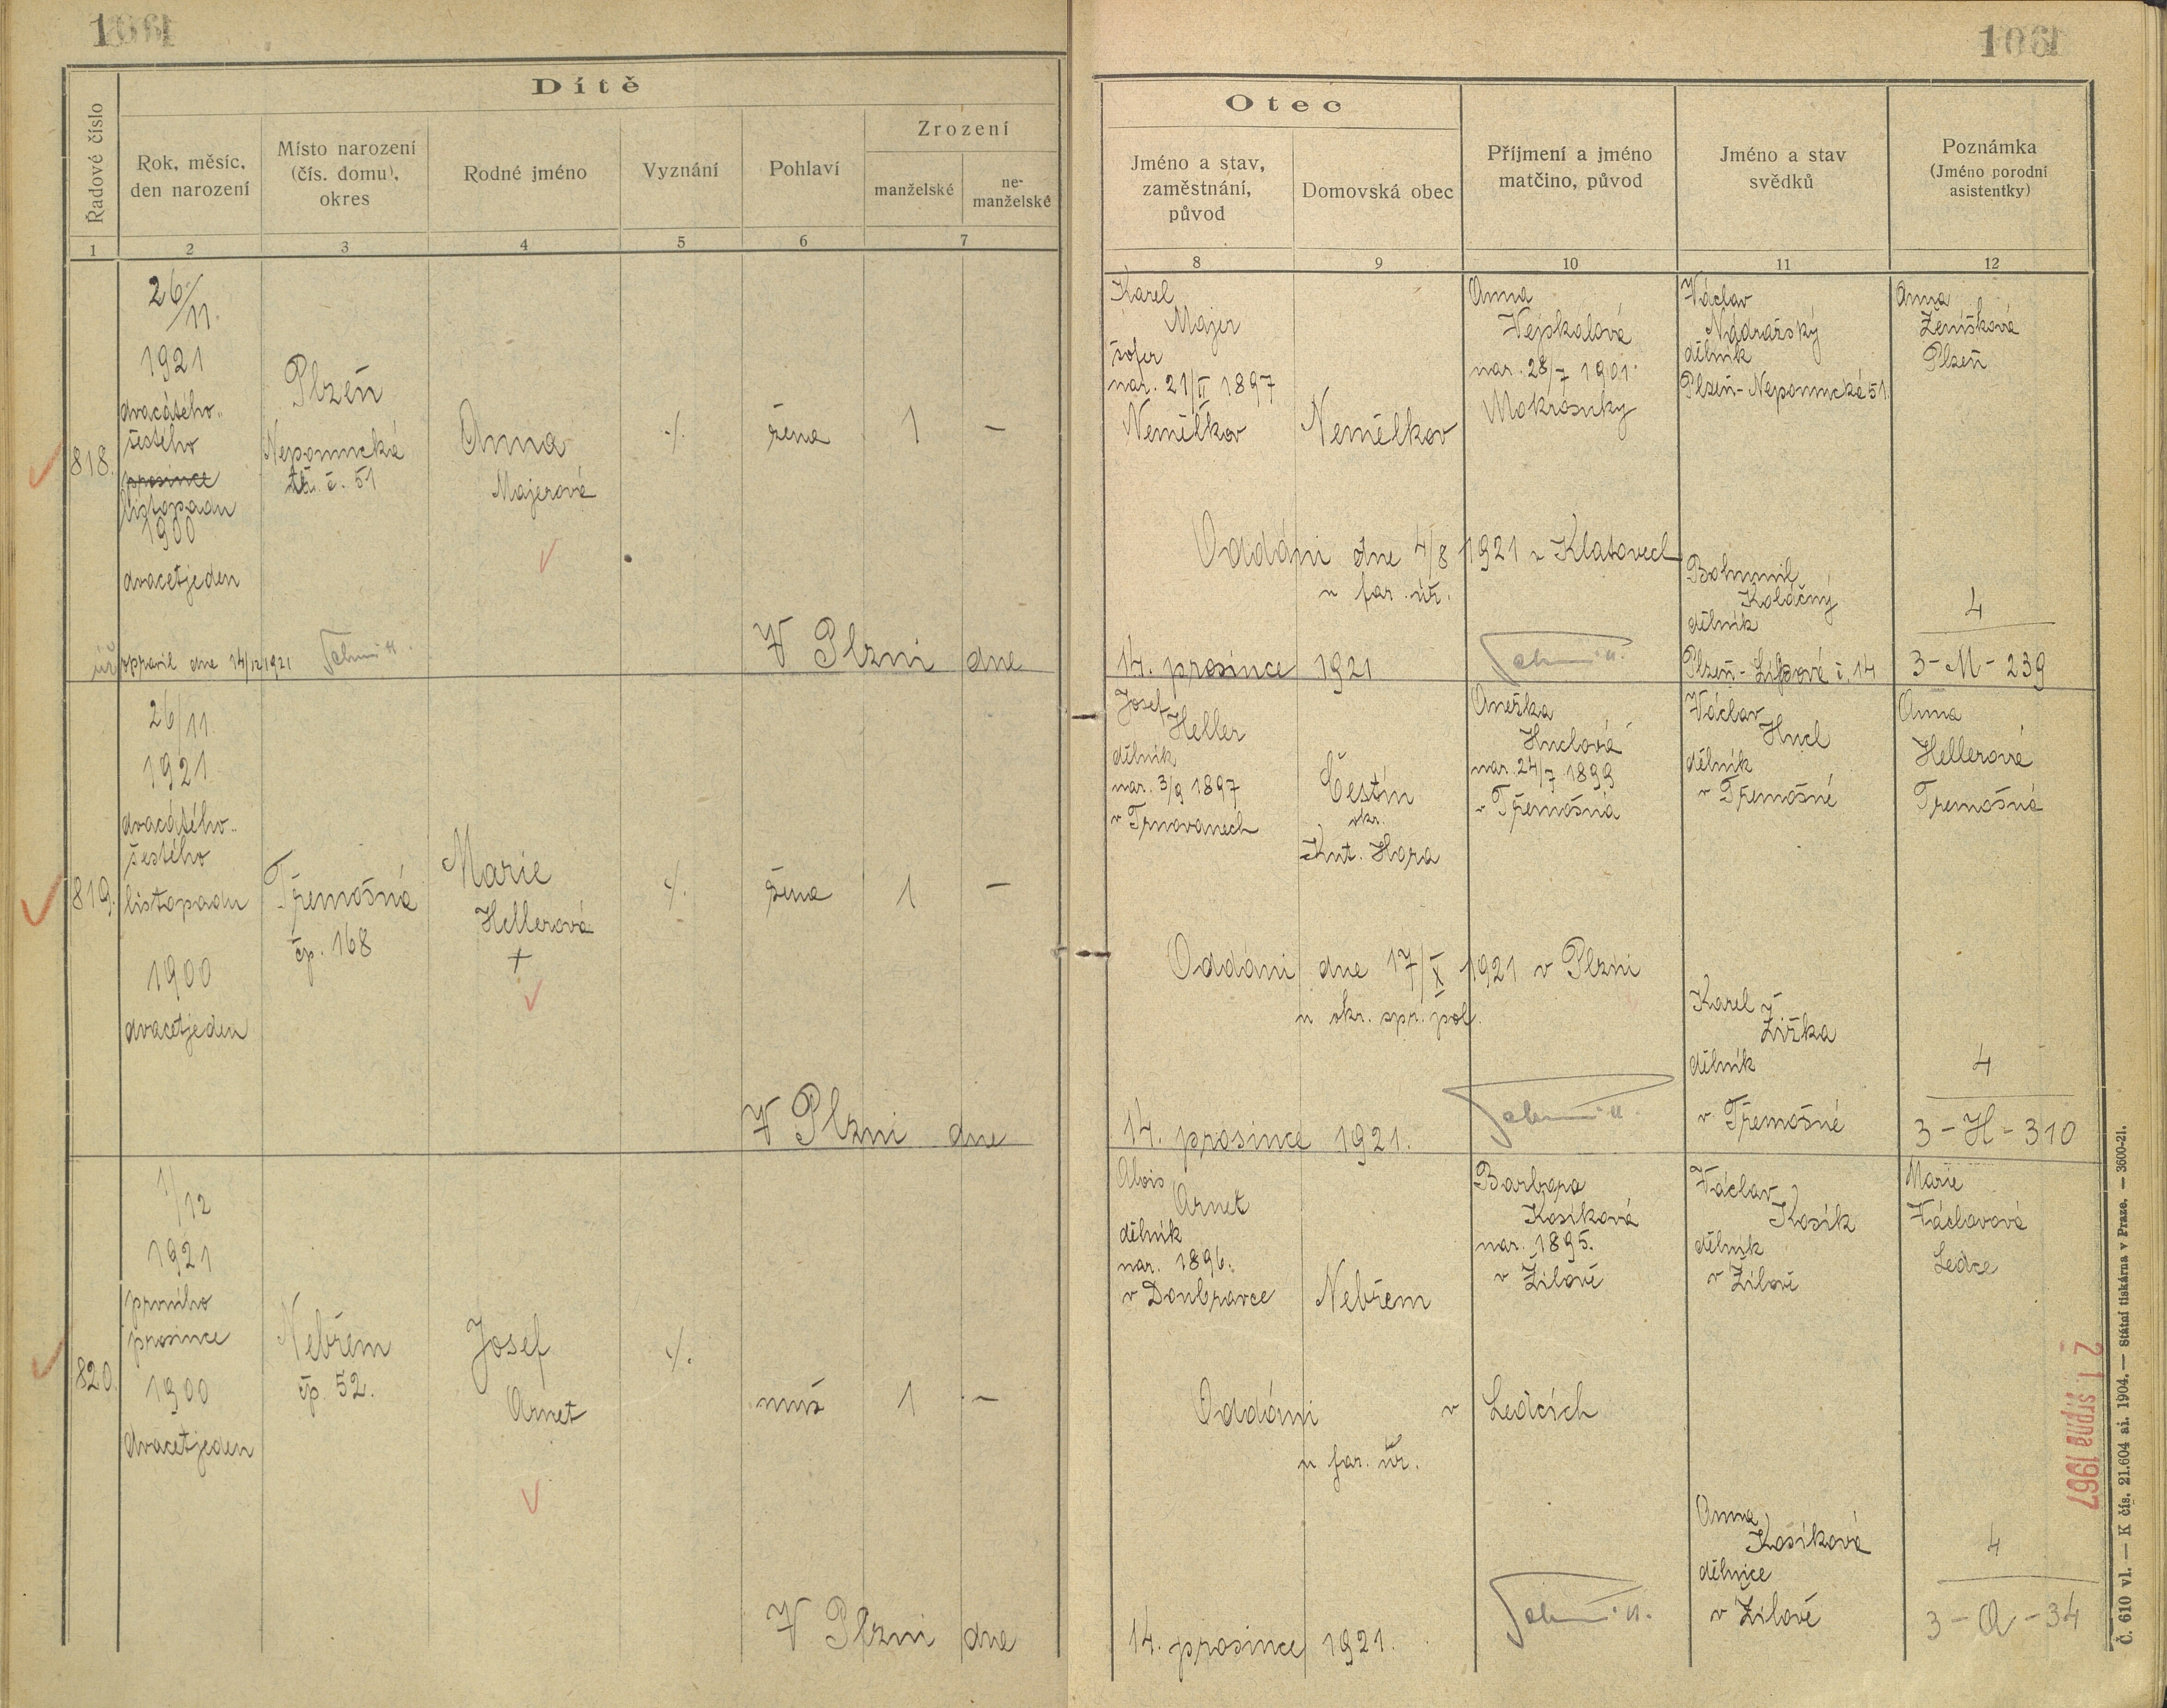 Dítě
Řadové číslo
Rok, měsíc,
den narození
Místo narození
(čís. domu),
okres
Rodné jméno
Vyznání
Pohlaví
Zrození
manželské
ne-
manželské
1
2
3
4
5
6
7
818.
26/11.
1921
dvacátého-
šestého
prosince
listopadu
1900
dvacetjeden
Plzeň
Nepomucká
tř. č. 51
Anna
Majerová
./.
žena
1
—
úř. opravil dne 14/12 1921
V Plzni dne
819.
26/11
1921
dvacátého-
šestého
listopadu
1900
dvacetjeden
Třemošná
čp. 168
Marie
Hellerová
+
./.
žena
1
—
V Plzni dne
820.
1/12
1921
prvního
prosince
1900
dvacetjeden
Nebřem
čp. 52.
Josef
Arnet
./.
muž
1
—
V Plzni dne
106
Otec
Jméno a stav,
zaměstnání,
původ
Domovská obec
Příjmení a jméno
matčino, původ
Jméno a stav
svědků
Poznámka
(Jméno porodní
asistentky)
8
9
10
11
12
Karel
Majer
šofer
nar. 21/II 1897
Nemělkov
Nemělkov
Anna
Vejskalová
nar. 28/7 1901.
Mokrosuky
Václav
Nádražský
dělník
Plzeň-Nepomucká 51.
Anna
Ženíšková
Plzeň
Oddáni dne 4/8 1921 v Klatovech
u far. úř.
Bohumil
Koláčný
dělník
Plzeň-Lipová č. 14
4
3-M-239
14. prosince 1921
Josef
Heller
dělník
nar. 3/9 1897
v Trnovanech
Čestín
okr.
Kut. Hora
Anežka
Huclová
nar. 24/7 1899
v Třemošná
Václav
Hucl
dělník
v Třemošné
Anna
Hellerová
Třemošná
Oddáni dne 17/X 1921 v Plzni
u okr. spr. pol.
Karel
Žižka
dělník
v Třemošné
4
3-H-310
14. prosince 1921.
Alois
Arnet
dělník
nar. 1896.
v Doubravce
Nebřem
Barbora
Kosíková
nar. 1895.
v Žilově
Václav
Kosík
dělník
v Žilově
Marie
Václavová
Ledce
Oddáni v Ledcích
u far. úř.
Anna
Kosíková
dělnice
v Žilově
4
3-A-34
14. prosince 1921.
21. srpna 1967
Č. 610 vl. — K čís. 21.604 ai. 1904. — Státní tiskárna v Praze. — 3600-21.